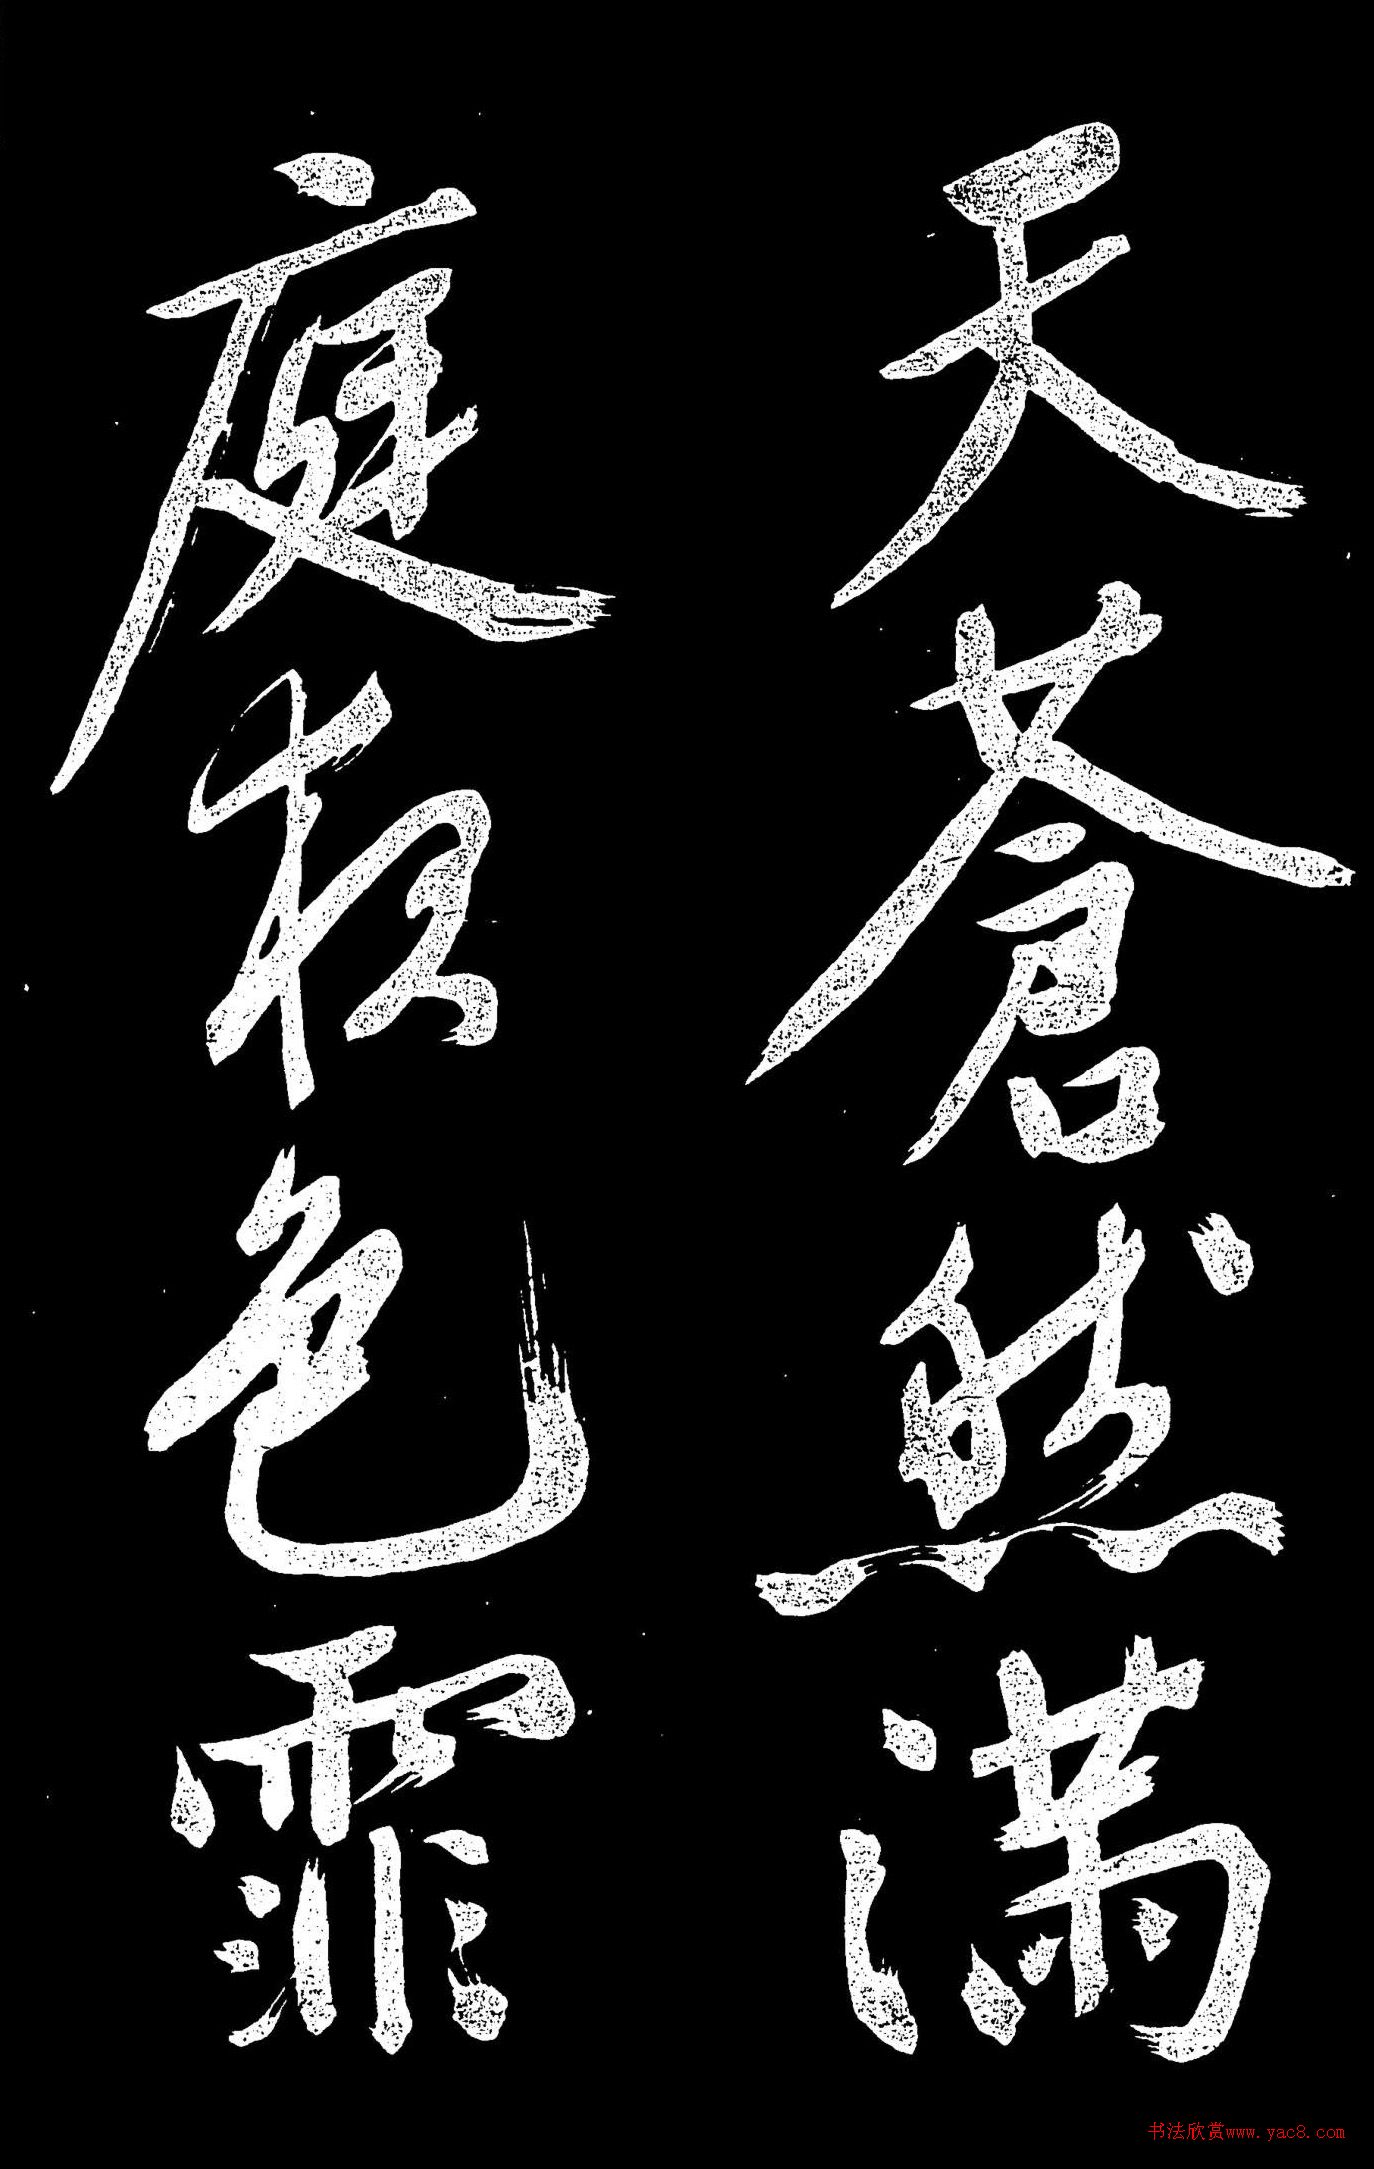 天蒼然滿
庭色霏
书法欣赏www.yac8.com